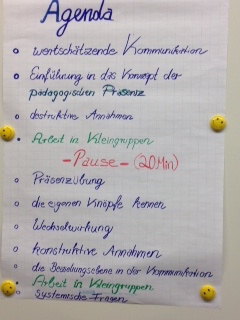 Agenda
wertschätzende Kommunikation
Einführung in das Konzept der
pädagogischen Präsenz
destruktive Annahmen
Arbeit in Kleingruppen
-Pause- (20 Min)
Präsenzübung
die eigenen Knöpfe kennen
Wechselwirkung
konstruktive Annahmen
die Beziehungsebene in der Kommunikation
Arbeit in Kleingruppen
Systemische Fragen